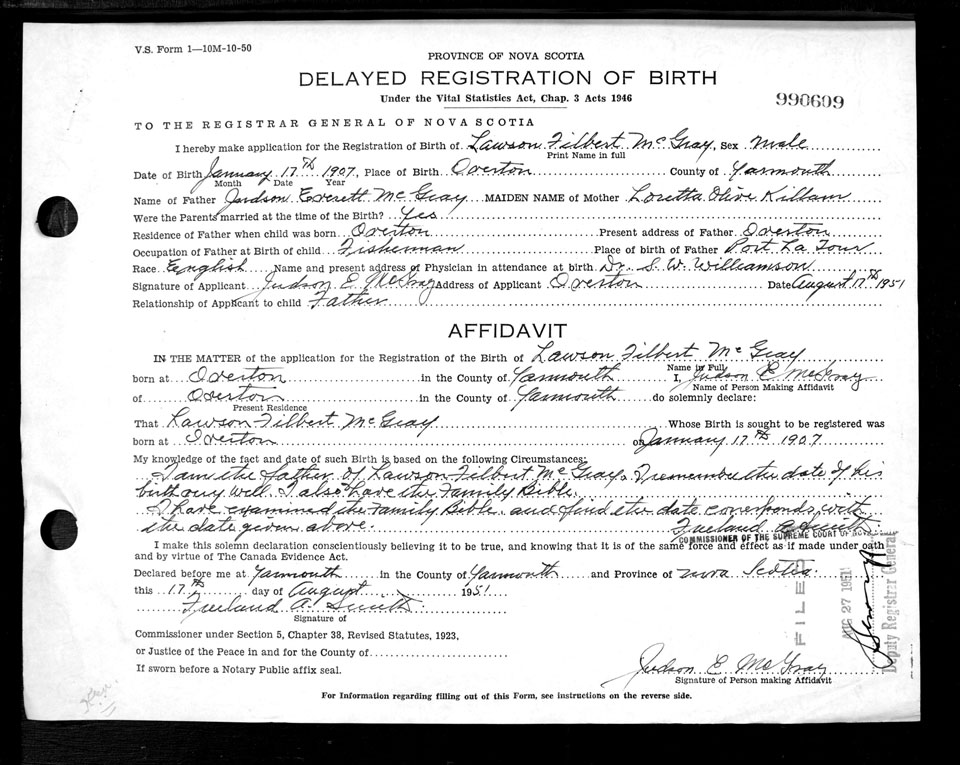 V.S. Form 1—10M-10-50
PROVINCE OF NOVA SCOTIA
DELAYED REGISTRATION OF BIRTH
Under the Vital Statistics Act, Chap. 3 Acts 1946
990609
TO THE REGISTRAR GENERAL OF NOVA SCOTIA
I hereby make application for the Registration of Birth of Lawson Filbert McGray, Sex Male
Print Name in full
Date of Birth January 17th 1907, Place of Birth Overton County of Yarmouth
Month Date Year
Name of Father Judson Everett McGray MAIDEN NAME of Mother Loretta Olive Killam
Were the Parents married at the time of the Birth? Yes
Residence of Father when child was born Overton Present address of Father Overton
Occupation of Father at Birth of child Fisherman Place of birth of Father Port La Tour
Race English Name and present address of Physician in attendance at birth Dr. S. W. Williamson
Signature of Applicant Judson E McGray Address of Applicant Overton Date August 17th 1951
Relationship of Applicant to child Father
AFFIDAVIT
IN THE MATTER of the application for the Registration of the Birth of Lawson Filbert McGray
Name in Full
born at Overton in the County of Yarmouth I, Judson E McGray
Name of Person Making Affidavit
of Overton in the County of Yarmouth do solemnly declare:
Present Residence
That Lawson Filbert McGray Whose Birth is sought to be registered was
born at Overton on January 17th 1907
My knowledge of the fact and date of such Birth is based on the following Circumstances:
I am the father of Lawson Filbert McGray. I remember the date of his
birth very well. I also have the Family Bible.
I have examined the Family Bible and find the date corresponds with
the date given above. Freeland A Smith
COMMISSIONER OF THE SUPREME COURT OF
I make this solemn declaration conscientiously believing it to be true, and knowing that it is of the same force and effect as if made under oath
and by virtue of The Canada Evidence Act.
Declared before me at Yarmouth in the County of Yarmouth and Province of Nova Scotia
this 17th day of August 1951
Freeland A. Smith
Signature of
Commissioner under Section 5, Chapter 38, Revised Statutes, 1923,
or Justice of the Peace in and for the County of
If sworn before a Notary Public affix seal.
Judson E McGray
Signature of Person making Affidavit
For Information regarding filling out of this Form, see instructions on the reverse side.
FILED
AUG 27 1951
Deputy Registrar General